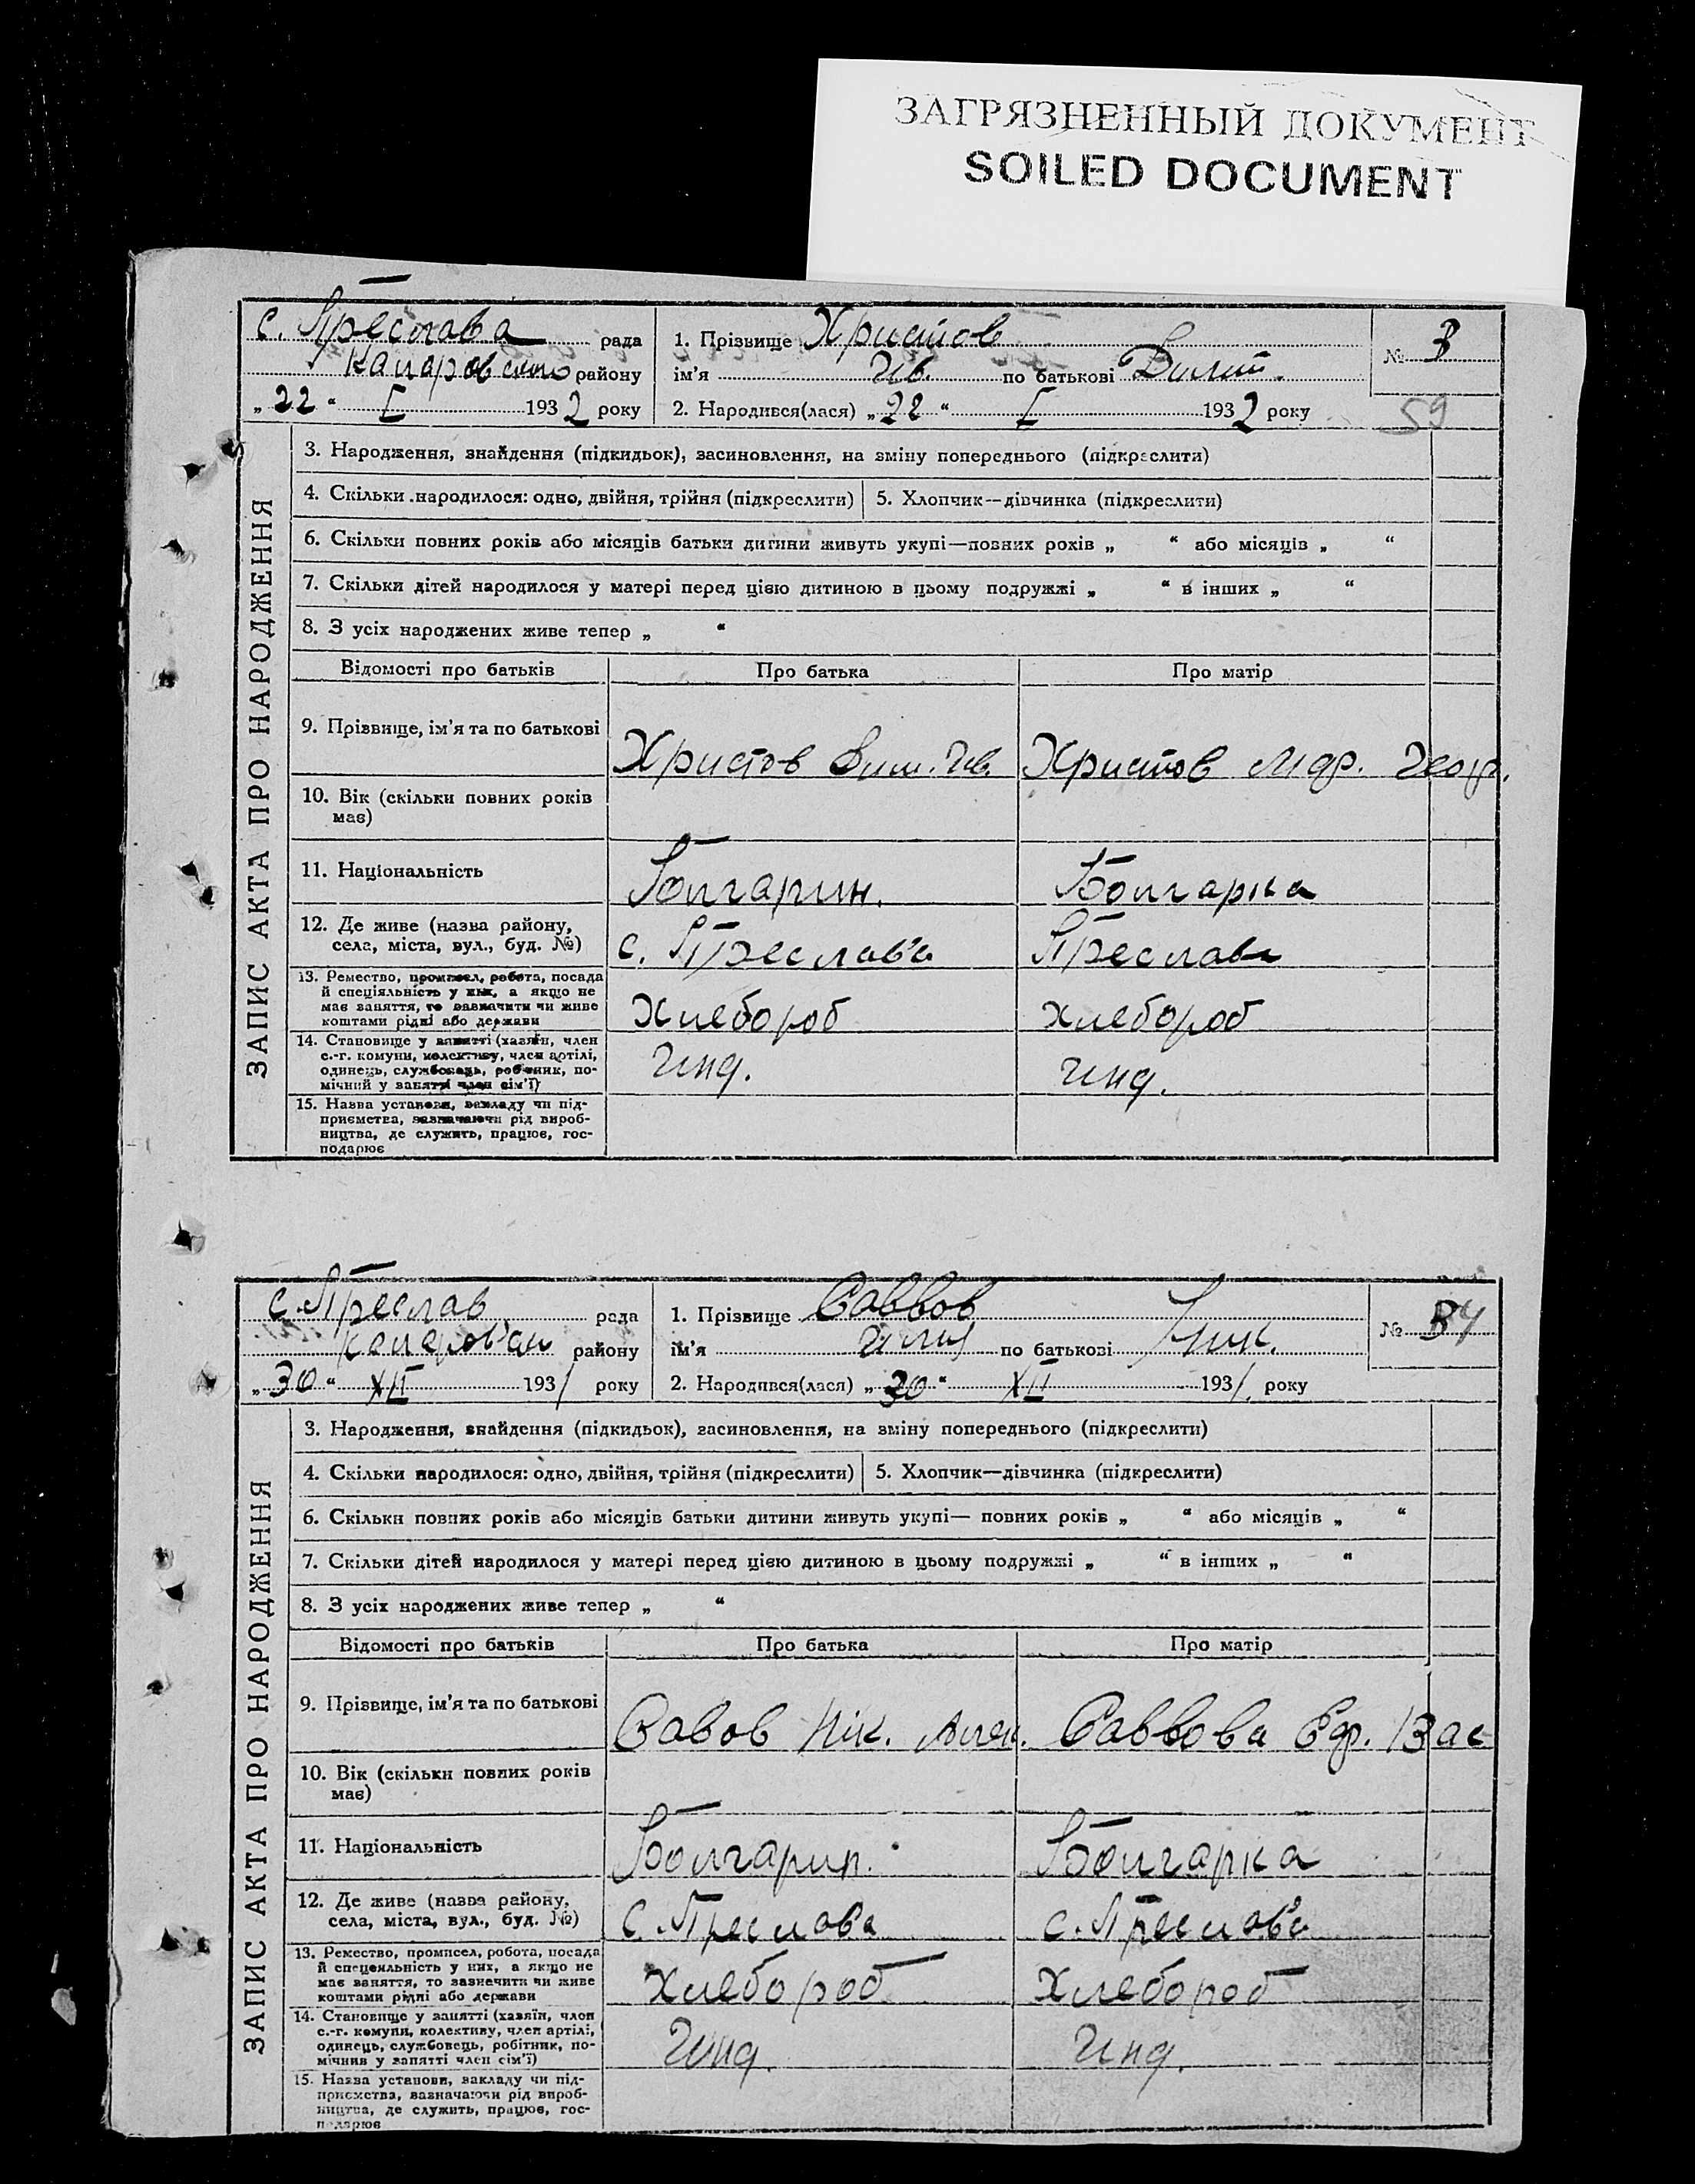 ЗАГРЯЗНЕННЫЙ ДОКУМЕНТ
SOILED DOCUMENT
с. Преслава рада
району
„22“ I 1932 року
1. Прізвище Христов
ім'я Ив. по батькові Димит.
2. Народився(лася) „22“ I 1932 року
№ 3
59
ЗАПИС АКТА ПРО НАРОДЖЕННЯ
3. Народження, знайдення (підкидьок), засиновлення, на зміну попереднього (підкреслити)
4. Скільки народилося: одно, двійня, трійня (підкреслити) 5. Хлопчик—дівчинка (підкреслити)
6. Скільки повних років або місяців батьки дитини живуть укупі—повних років „ “ або місяців „ “
7. Скільки дітей народилося у матері перед цією дитиною в цьому подружжі „ “ в інших „ “
8. З усіх народжених живе тепер „ “
Відомості про батьків Про батька Про матір
9. Прізвище, ім'я та по батькові Христов Дим. Ив. Христов Мар. Георг.
10. Вік (скільки повних років
має)
11. Національність Болгарин. Болгарка
12. Де живе (назва району,
села, міста, вул., буд. №) с. Преслава Преслава
13. Ремество, промисел, робота, посада
й спеціяльність у них, а якщо не
має заняття, то зазначити чи живе
коштами рідні або держави Хлебороб хлебороб
14. Становище у занятті (хазяїн, член
с.-г. комуни, колективу, член артілі,
одинець, службовець, робітник, по-
мічний у занятті член сім'ї) Инд. Инд.
15. Назва установи, закладу чи під-
приємства, зазначаючи рід вироб-
ництва, де служить, працює, гос-
подарює
с. Преслав рада
району
„30“ XII 1931 року
1. Прізвище Саввов
ім'я по батькові Ник.
2. Народився(лася) „30“ XII 1931 року
№ 4
ЗАПИС АКТА ПРО НАРОДЖЕННЯ
3. Народження, знайдення (підкидьок), засиновлення, на зміну попереднього (підкреслити)
4. Скільки народилося: одно, двійня, трійня (підкреслити) 5. Хлопчик—дівчинка (підкреслити)
6. Скільки повних років або місяців батьки дитини живуть укупі— повних років „ “ або місяців „ “
7. Скільки дітей народилося у матері перед цією дитиною в цьому подружжі „ “ в інших „ “
8. З усіх народжених живе тепер „ “
Відомості про батьків Про батька Про матір
9. Прізвище, ім'я та по батькові Савов Нік. Алек. Саввова Ефр. Вас
10. Вік (скільки повних років
має)
11. Національність Болгарин. Болгарка
12. Де живе (назва району,
села, міста, вул., буд. №) с. Преслава с. Преслава
13. Ремество, промисел, робота, посада
й спецеяльність у них, а якщо не
має заняття, то зазначити чи живе
коштами рідні або держави Хлебороб Хлебороб
14. Становище у занятті (хазяїн, член
с.-г. комуни, колективу, член артілі,
одинець, службовець, робітник, по-
мічний у занятті член сім'ї) Инд. Инд.
15. Назва установи, закладу чи під-
приємства, зазначаючи рід вироб-
ництва, де служить, працює, гос-
подарює